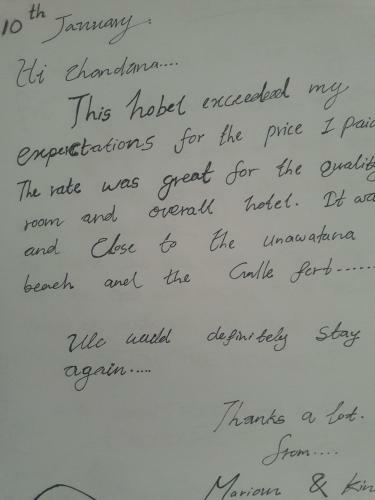 10th January.
Hi Chandana....
This hotel exceeded my
expectations for the price I paid
The rate was great for the quality
room and overall hotel. It wa
and Close to the unawatuna
beach and the Galle fort......
We would definitely stay
again.....
Thanks a lot.
from....
Marioun & Kin